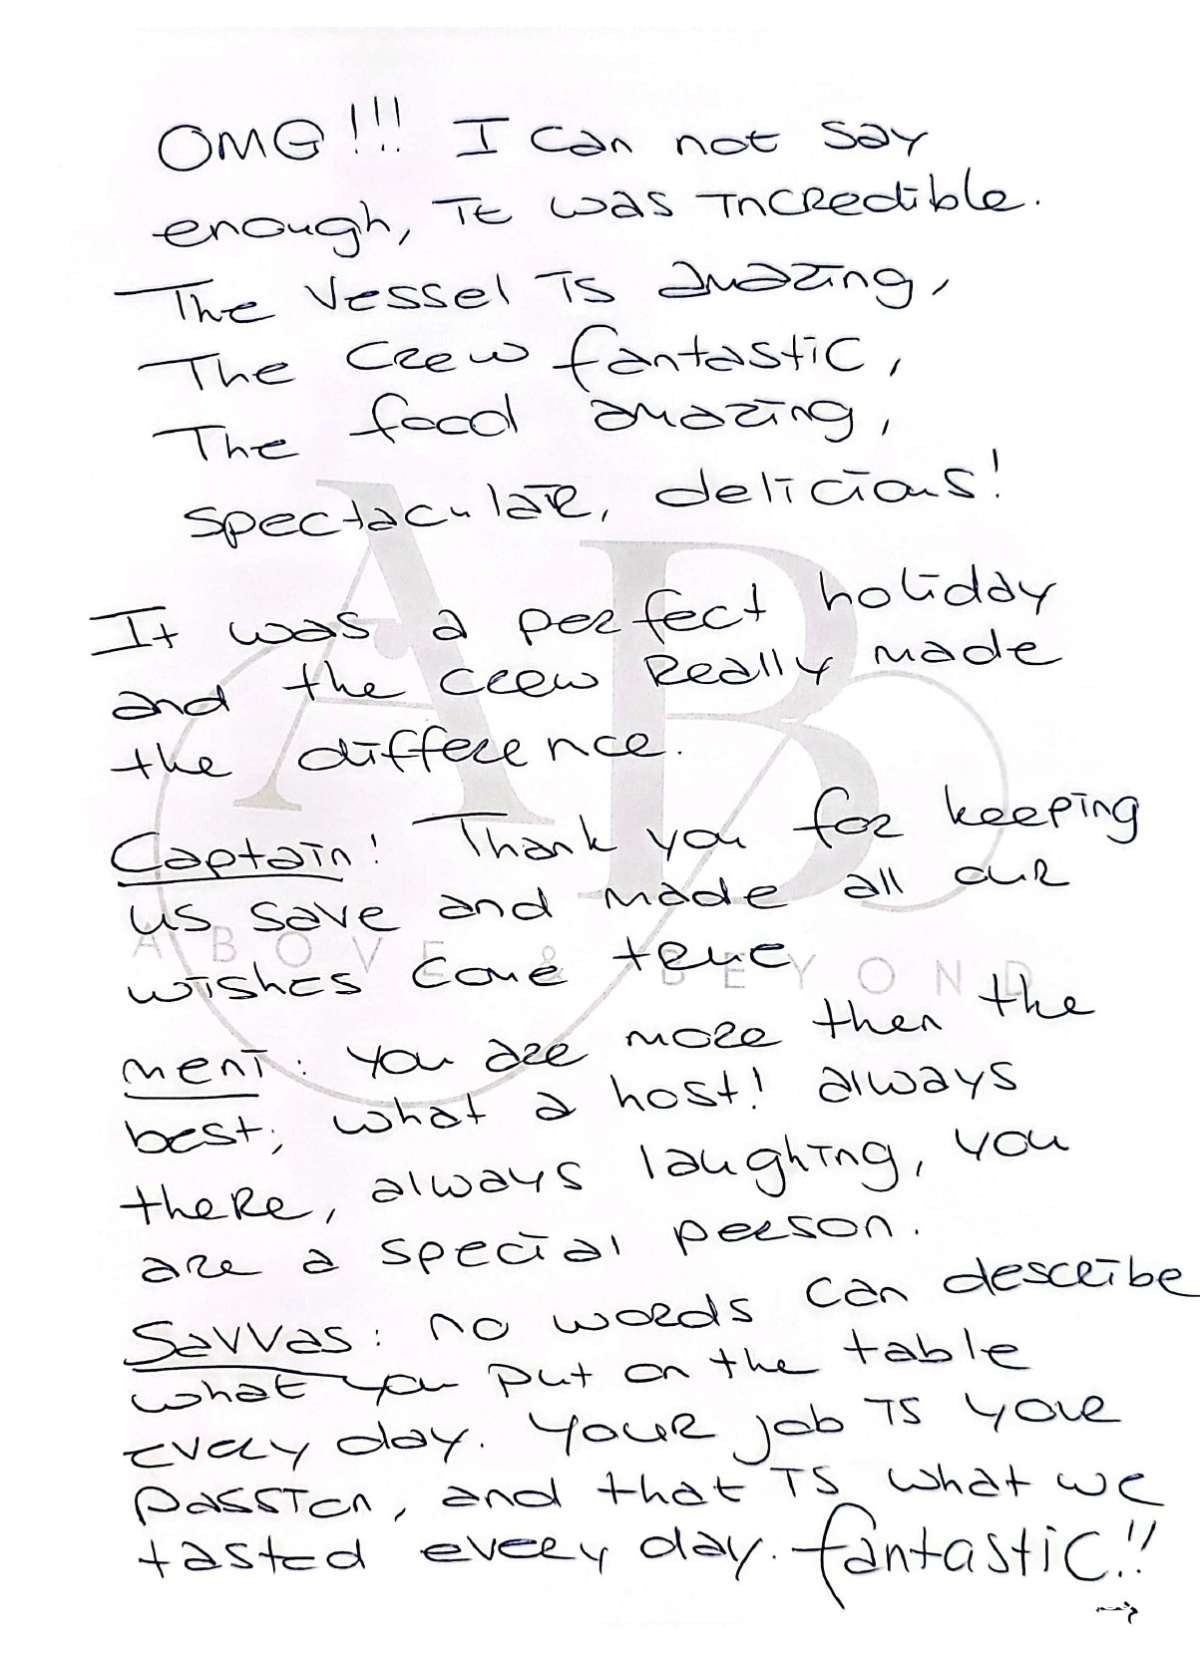 OMG!!! I can not say
enough, it was incredible.
The vessel is amazing,
The crew fantastic,
The food amazing,
spectaculair, delicious!
It was a perfect holiday
and the crew Really made
the difference.
Captain! Thank you for keeping
us save and made all our
wishes come true
ABOVE & BEYOND
meni: you are more then the
best, what a host! always
there, always laughing, you
are a special person.
Savvas: no words can describe
what you put on the table
every day. Your job is your
passion, and that is what we
tasted every day. fantastic!!
AB